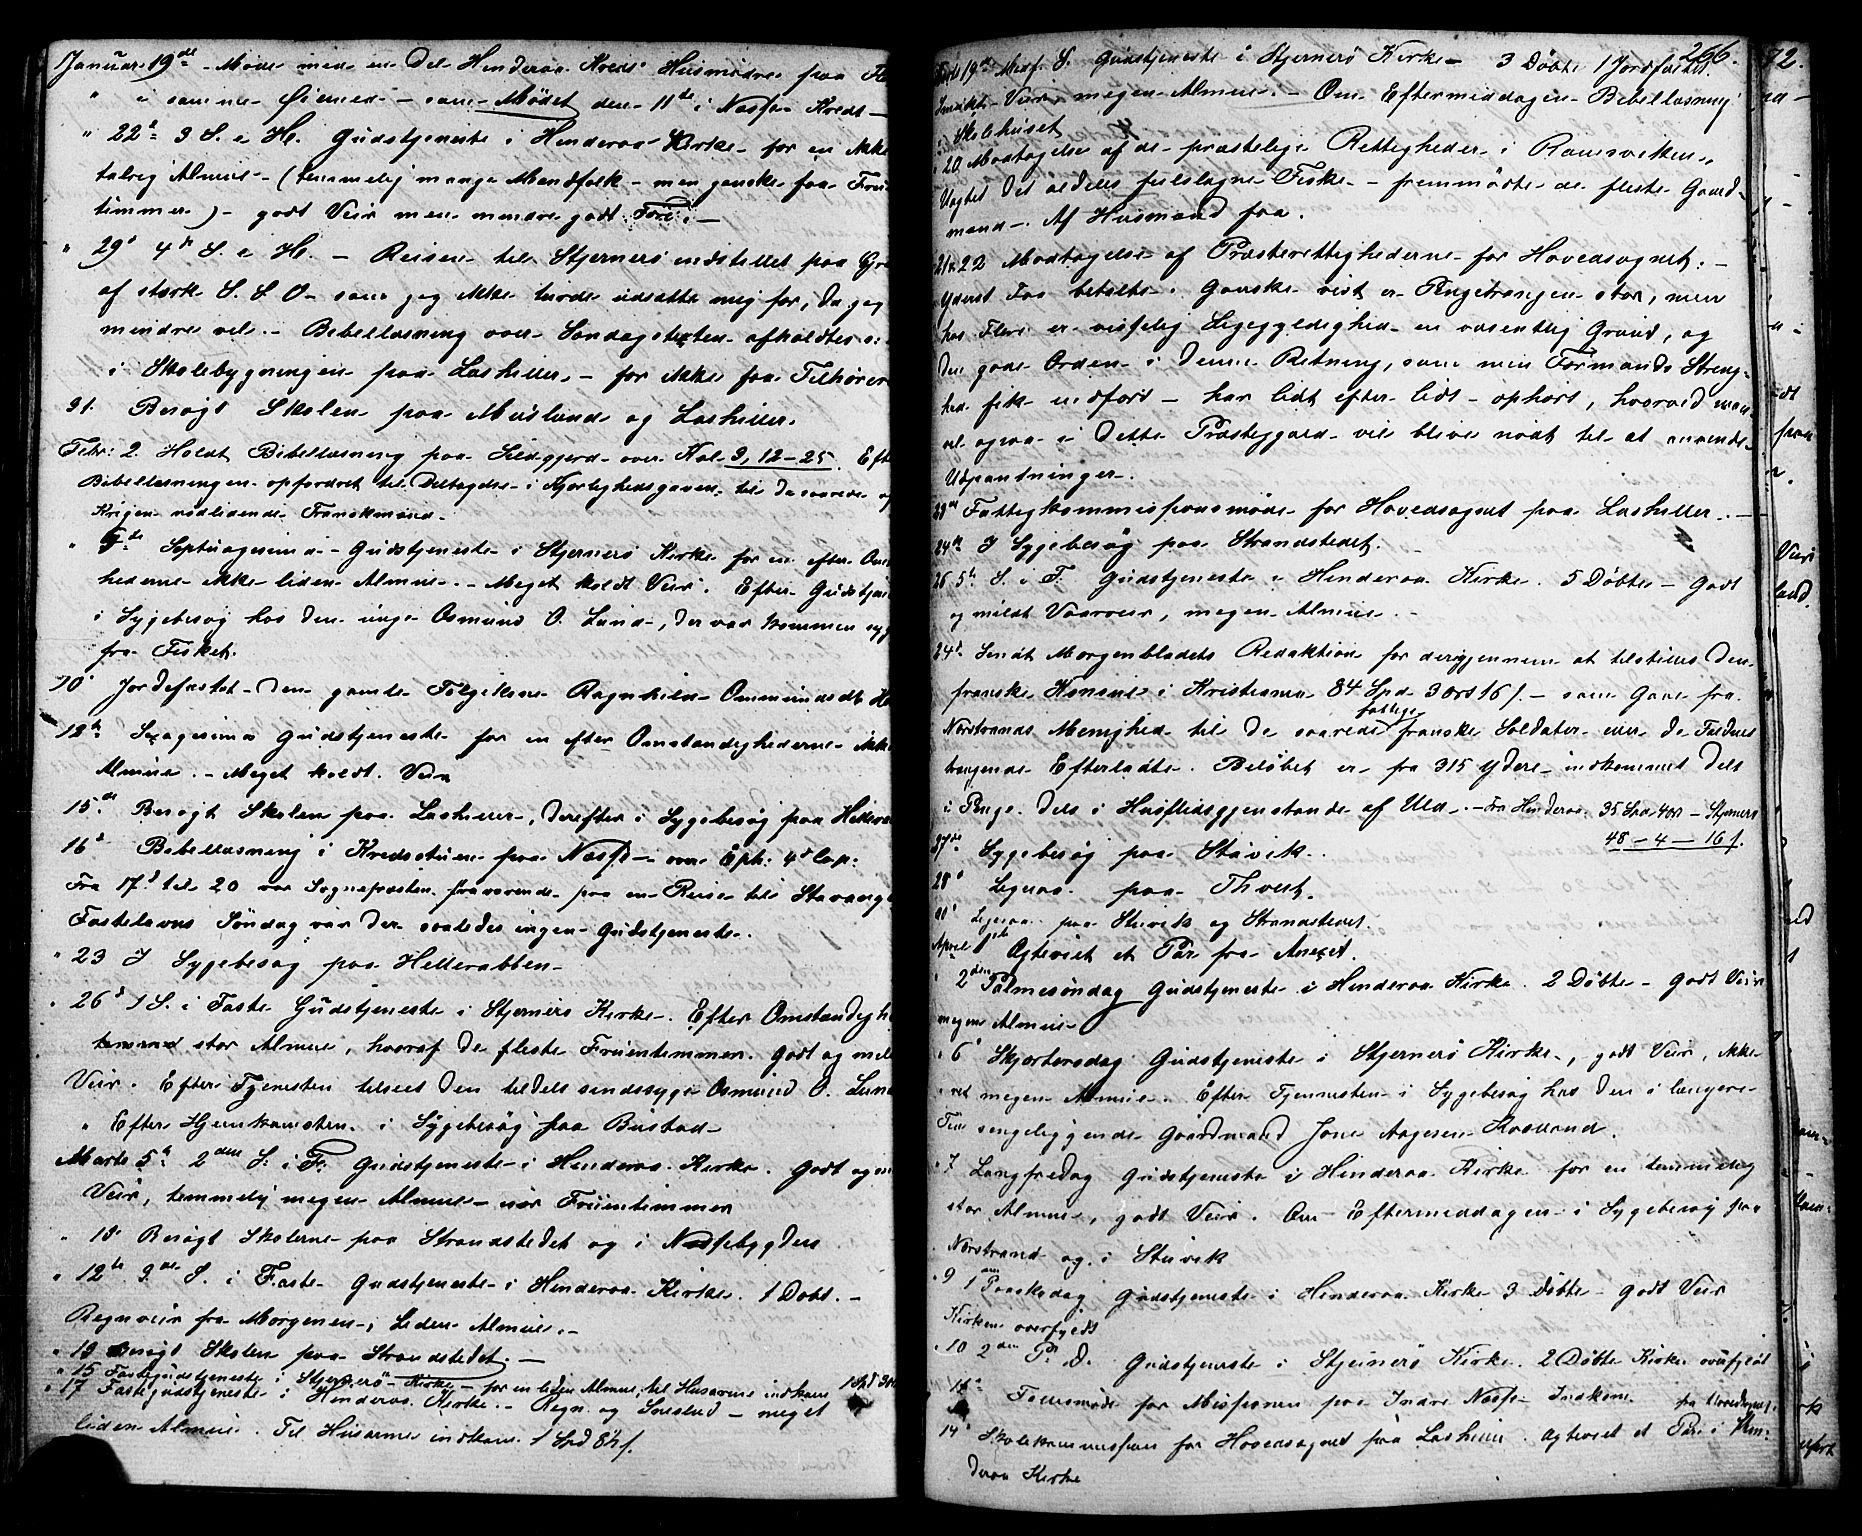 Januar 19de Møde med en Del Hinderaa Kreds' Husmødre paa
" i samme Øiemed – som Mødet den 11te i Næssø Kreds –
" 22d 3 S. e H. Gudstjeneste i Hinderaa Kirke for en ikke
talrig Almue – (temmelig mange Mandfolk – men ganske faa Fruen-
timmer) – godt Veir men mindre godt Føre. –
" 29d 4de S. e H. – Reisen til Stjernerø indstillet paa Gr
af stærk S. S. O. som jeg ikke turde udsætte mig for, da jeg
mindre vel. – Bibellæsning over Søndagstexten afholdtes
i Skolebygningen paa Lasteller – for ikke faa Tilhører
31. Besøgt Skolen paa Musland og Lasteller.
Febr: 2 Holdt Bibellæsning paa Sedgjerd over Kol 3, 12–25. Eft
Bibellæsningen opfordret til Deltagelse i Kjærlighedsgaven til de saarede og
Krigen nødlidende Franskmænd.
" 5te Septuagesima – Gudstjeneste i Stjernerø Kirke for en efter Om
hederne ikke liden Almue. – Meget koldt Veir. Efter Gudstjen
i Sygebesøg hos den unge Osmund O. Lund, der var kommen syg
fra Fisket.
10d Jordfæstet den gamle Følgekone Ragnhild Ommundsdt.
12te Sexagesima Gudstjeneste for en efter Omstændighederne ikke
Almue. – Meget koldt Veir
15de Besøgt Skolen paa Lasteller, derefter i Sygebesøg paa
16d Bibellæsning i Kredsstuen paa Næssø – over Eph: 4d Cap:
Fra 17d til 20 var Sognepræsten fraværende paa en Reise til Stavange
Fastelavns Søndag var der saaledes ingen Gudstjeneste.
" 23 I Sygebesøg paa Hellerabben
" 26d 1 S. i Faste Gudstjeneste i Stjernerø Kirke. Efter Omstændigh
stor Almue, hvoraf de fleste Fruentimmer. Godt og mil
Veir. Efter Tjenesten tilseet den tildels sindssyge Osmund O. Lun
" Efter Hjemkomsten i Sygebesøg paa Bustad
Marts 5te 2den S. i F. Gudstjeneste i Hinderaa Kirke. Godt og
Veir, temmelig megen Almue – Fruentimmer
" 10d Besøgt Skolerne paa Strandstedet og i Næssebygden
" 12te 3de S. i Faste Gudstjeneste i Hinderaa Kirke. 1 Døbt. –
Regnveir fra Morgenen; Liden Almue. –
" 13 Besøgt Skolen paa Strandstedet. –
" 15 Fastegudstjeneste i Stjernerø Kirke – for en liden Almue, til Husarme indkom 1 Spd
" 17 Fastegudstjeneste i Hinderaa Kirke. – Regn og Snesludd – meget
liden Almue. Til Husarme indkom 1 Spd 84 ſ.
266.
Marts 19de Midf. S. Gudstjeneste i Stjernerø Kirke – 3 Døbte 1 Jordfæstet.
Smukt Veir megen Almue. – Om Eftermiddagen Bibellæsning
i Skolehuset
" 20 Modtagelse af de præstelige Rettigheder i Ramsviken.
Uagtet det aldeles feilslagne Fiske – fremmødte de fleste Gaard-
mænd. Af Husmænd faa.
21 & 22 Modtagelse af Præsterettighederne for Hovedsognet. –
Yderst Faa betalte. Ganske vist er Pengetrangen stor, men
hos Flere er visselig Ligegyldighed en væsentlig Grund, og
den gode Orden i denne Retning, som min Formands Streng-
hed fik indført – har lidt efter lidt ophørt, hvorved man
vel ogsaa i dette Præstegjæld vil blive nødt til at anvende
Udpantninger.
23de Fattigkommissionsmøde for Hovedsognet paa Lasteller. –
24de I Sygebesøg paa Strandstedet.
26 5te S. i F. Gudstjeneste i Hinderaa Kirke. 5 Døbte – Godt
og mildt Vaarveir, megen Almue. –
24d. Sendt Morgenbladets Redaktion for derigjennem at tilstilles den
franske Konsul i Kristiania 84 Spd 3 ort 16 ſ. – som Gave fra
Nærstrands Menighed til de saarede fattige franske Soldater eller de Faldnes
trængende Efterladte. Beløbet er fra 315 Ydere indkommet dels
i Penge dels i Husflidsgjenstande af Uld. – Fra Hinderaa 35 Spd 4 ort – Stjernerø
48 – 4 – 16 ſ.
27de Sygebesøg paa Stuvik.
28d Ligesaa paa Thvest.
30d Ligesaa paa Stuvik og Strandstedet.
April 1ste Ægteviet et Par fra Anexet.
" 2den Palmesøndag Gudstjeneste i Hinderaa Kirke 2 Døbte – Godt Veir
megen Almue
" 6d Skjærtorsdag Gudstjeneste i Stjernerø Kirke, godt Veir, ikke
ret megen Almue. Efter Tjenesten i Sygebesøg hos den i længere
Tid sengeliggende Gaardmand Jone Aagesen
" 7 Langfredag Gudstjeneste i Hinderaa Kirke for en temmelig
stor Almue, godt Veir. Om Eftermiddagen i Sygebesøg paa
Nærstrand og i Stuvik
" 9 1ste Paaskedag Gudstjeneste i Hinderaa Kirke 3 Døbte – Godt Veir
Kirken overfyldt
" 10 2den P. D. Gudstjeneste i Stjernerø Kirke. 2 Døbte Kirken overfyldt
11te Faaremøde for Missionen paa Indre Næssø Indkom fra Hovedsognet
14d Skolekommission for Hovedsognet paa Lasteller. Ægteviet et Par i Hin-
deraa Kirke